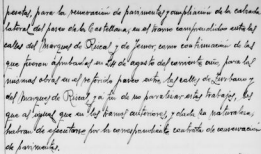 pesetas, para la renovación de pavimentos y ampliación de la calzada
lateral del paseo de la Castellana, en el tramo comprendido entre las
calles del marqués de Riscal y de Jenner, como continuación de las
que fueron aprobadas en 28 de agosto del corriente año, para las
mismas obras en el referido paseo entre las calles de
del marqués de Riscal, a fin de no paralizar estos trabajos, los
que al igual que en los tramos anteriores, y dada su naturaleza,
habrán de ejecutarse por la correspondiente contrata de conservación
de pavimentos.